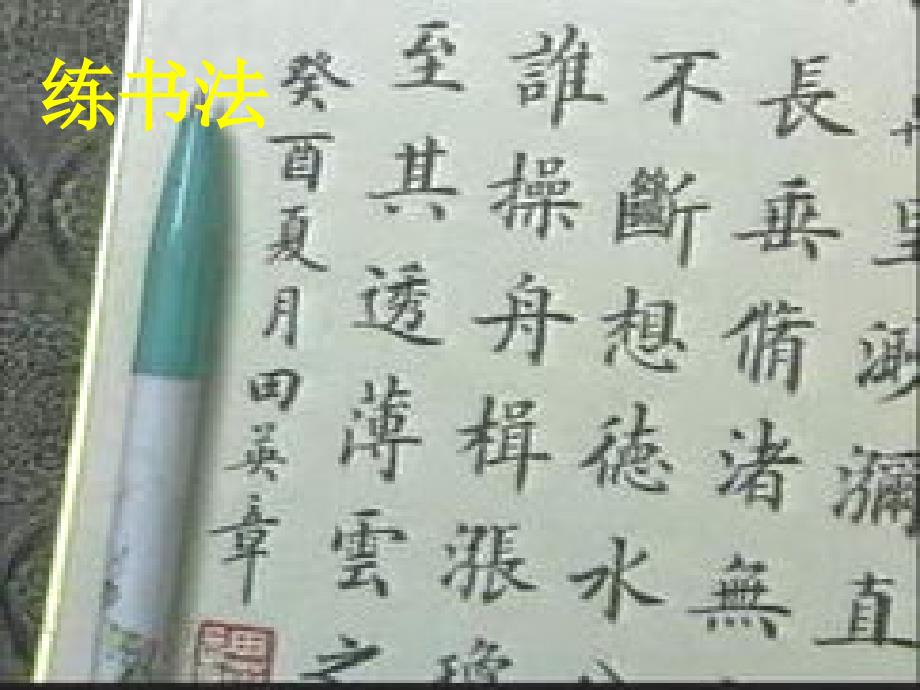 练书法
里直
長垂脩渚無
不斷想德水
誰操舟楫漲
至其透薄雲之
癸酉夏月田英章